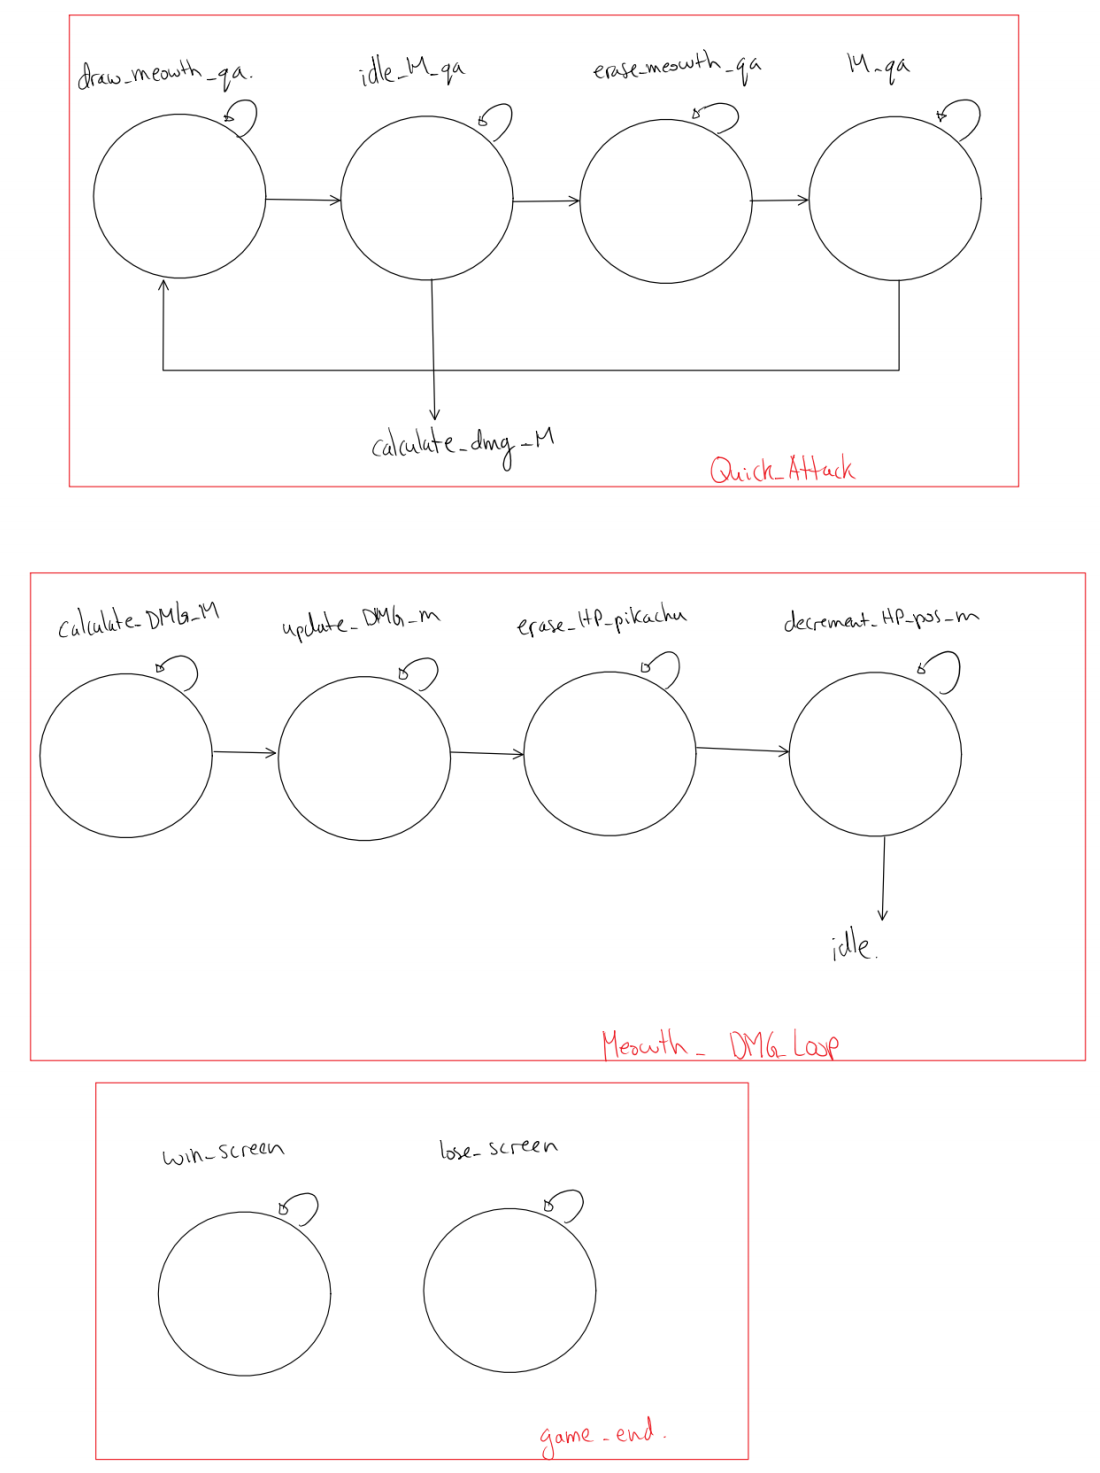 draw_meowth_qa.
idle_M_qa
erase_meowth_qa
M_qa
calculate_dmg_M
Quick_Attack
calculate_DMG_M
update_DMG_m
erase_HP_pikachu
decrement_HP_pos_m
idle.
Meowth_DMG_Loop
win_screen
lose_screen
game_end.